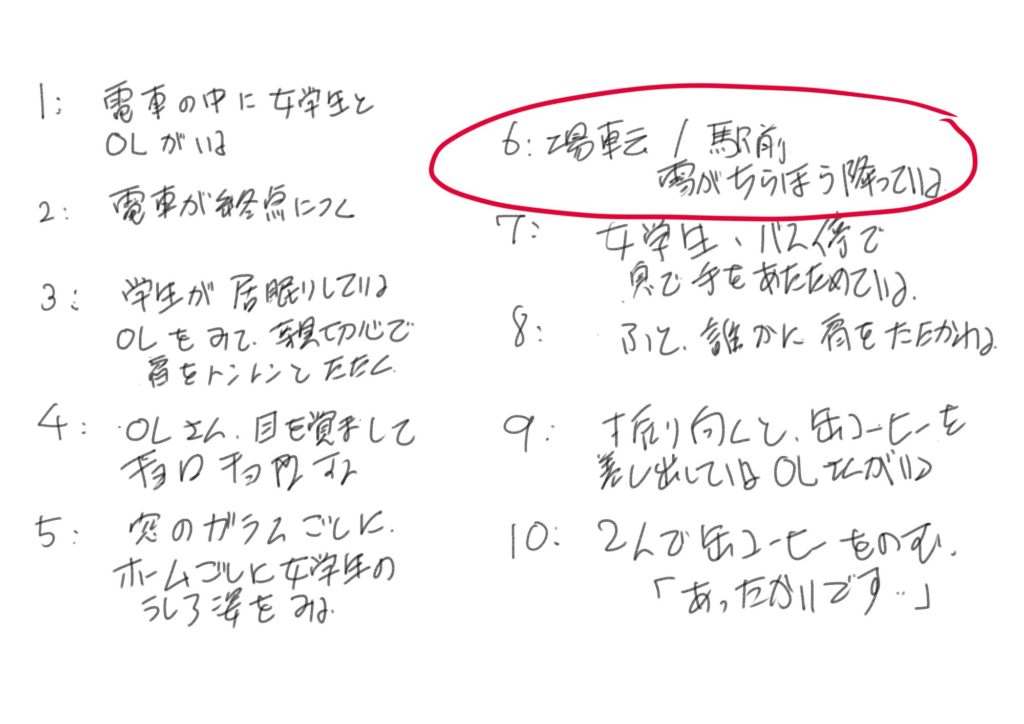 1: 電車の中に女学生と
OLがいる
2: 電車が終点につく
3: 学生が居眠りしている
OLをみて、親切心で
肩をトントンとたたく
4: OLさん、目を覚まして
キョロキョロする
5: 窓のガラスごしに、
ホームごしに女学生の
うしろ姿をみる
6: 場転 / 駅前
雪がちらほら降っている
7: 女学生、バス停で
息で手をあたためている。
8: ふと、誰かに肩をたたかれる
9: 振り向くと、缶コーヒーを
差し出しているOLさんがいる
10: 2人で缶コーヒーをのむ、
「あったかいです‥」